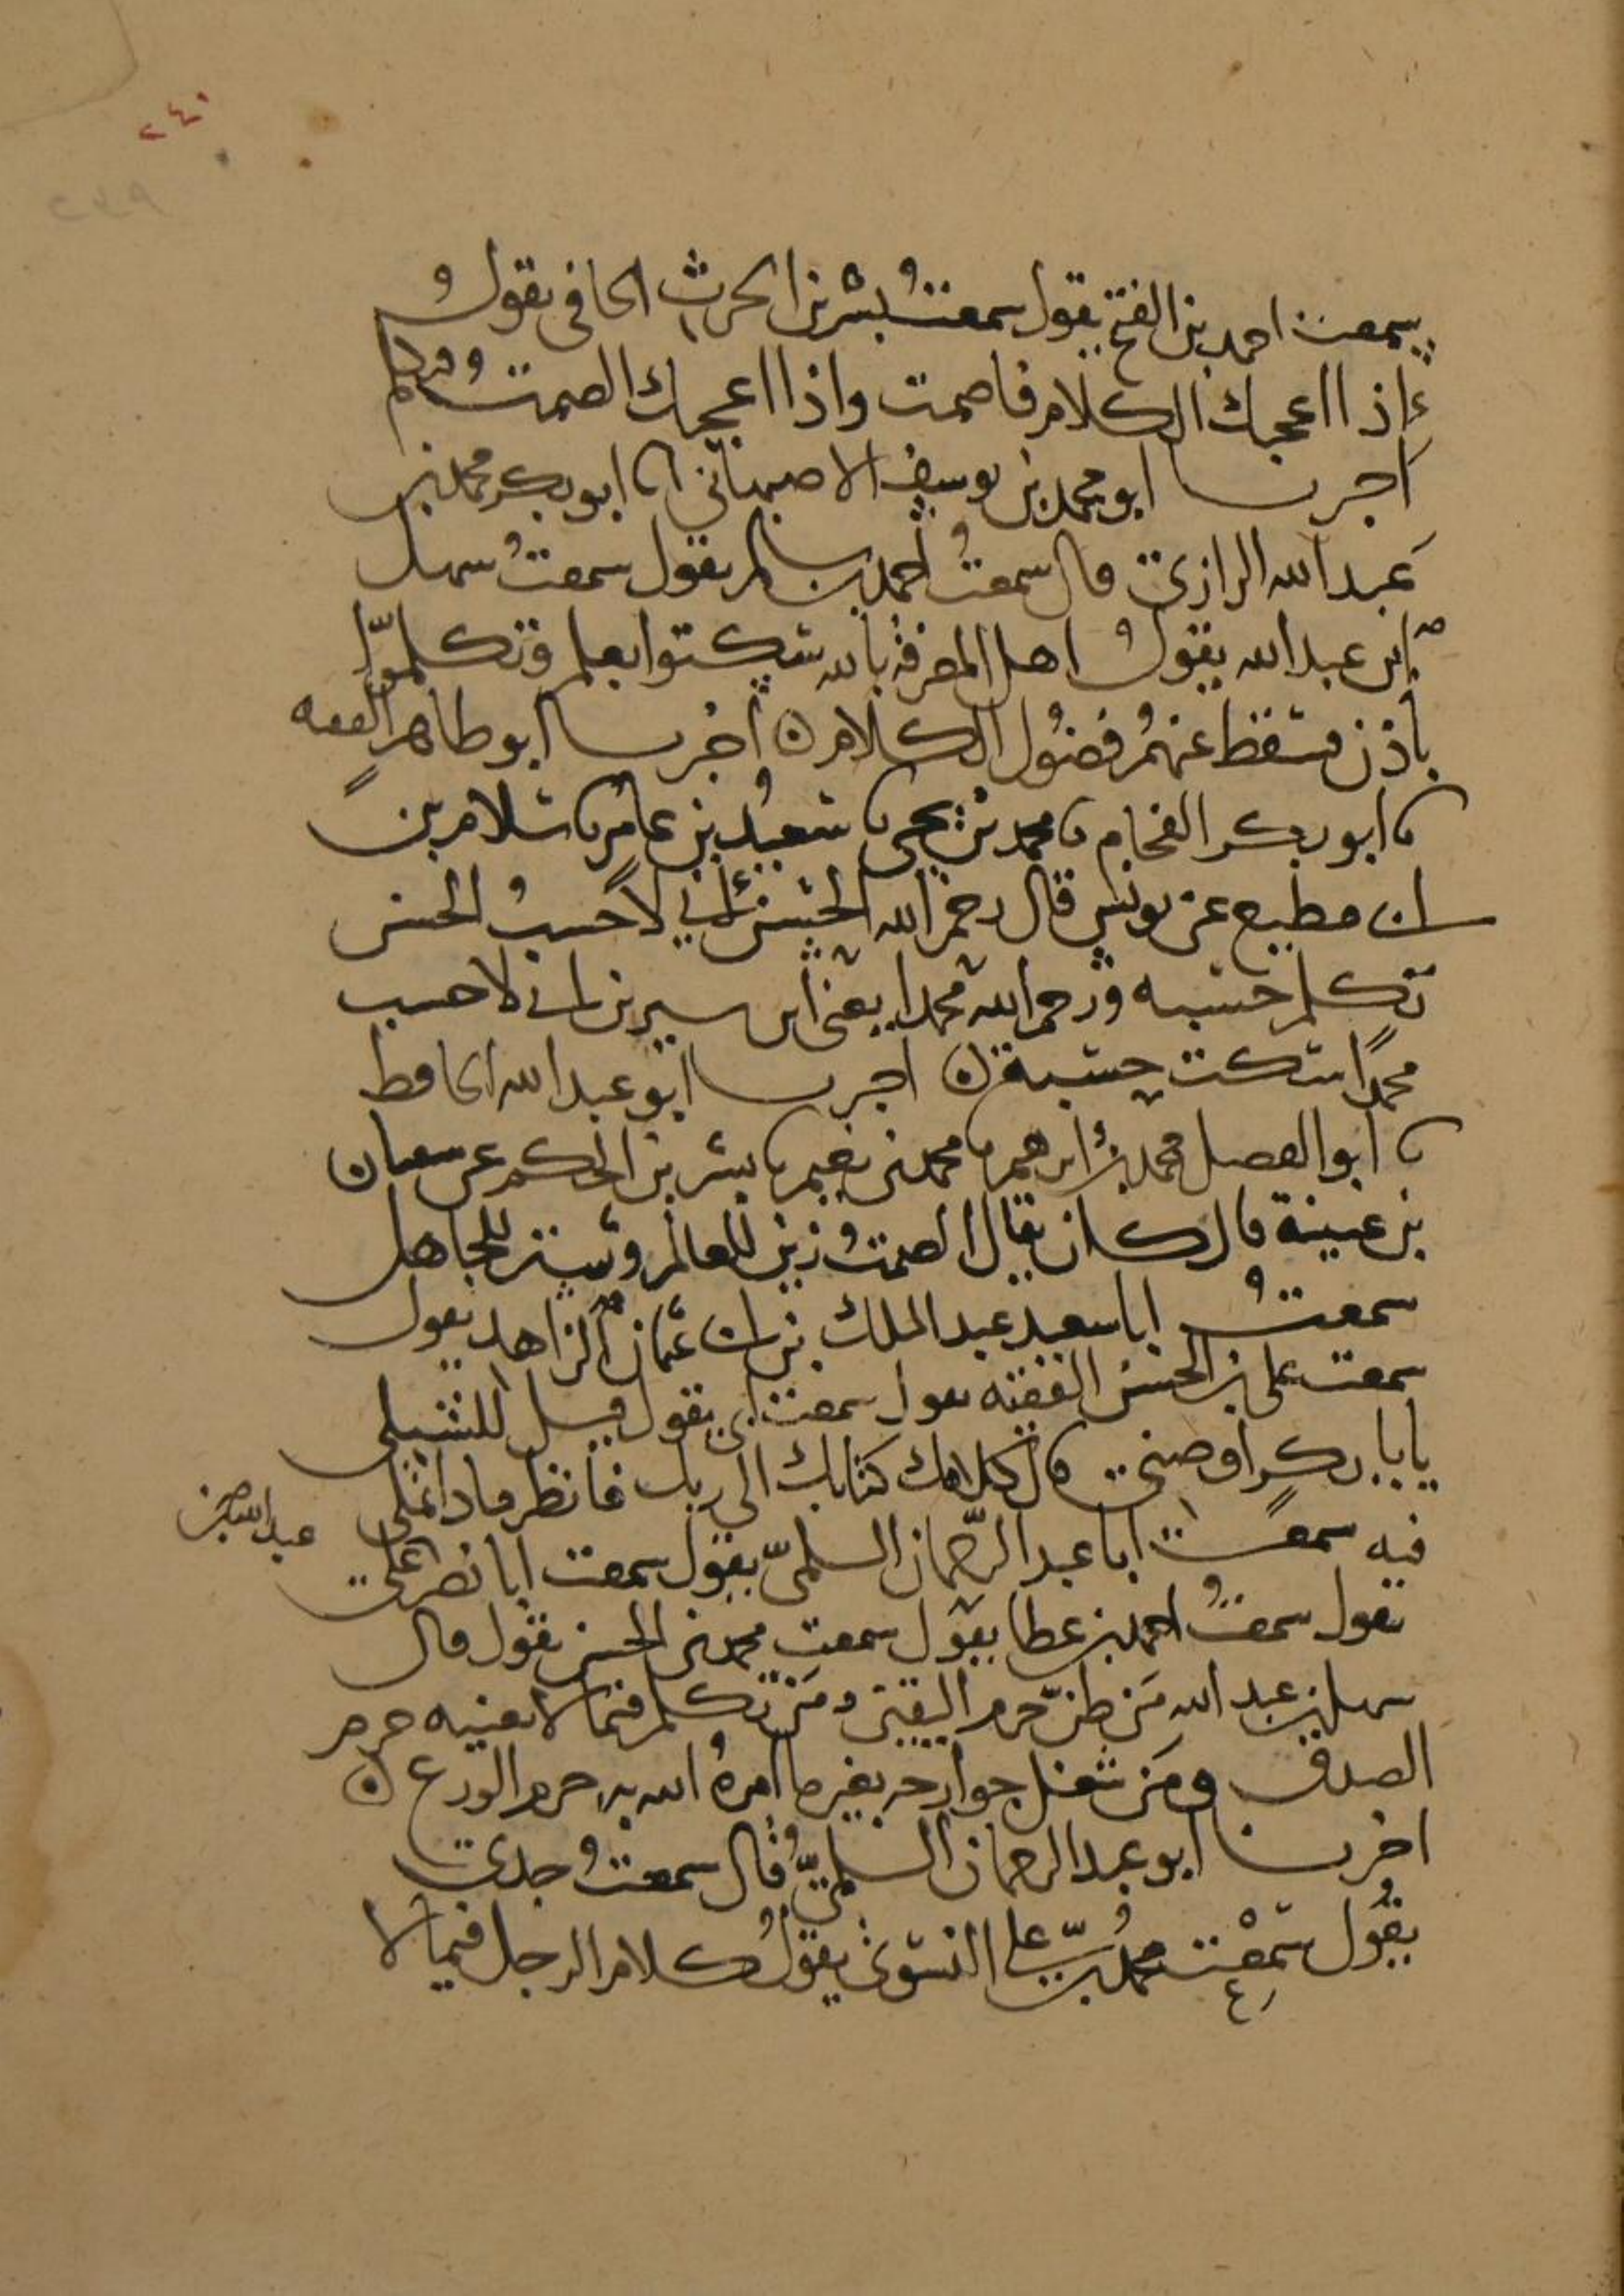 ٢٤١
سمعت احمد بن الفتح يقول سمعت بشر بن الحرث الحافي يقول
إذا اعجبك الكلام فاصمت واذا اعجبك الصمت فتكلم
اخبرنا ابو محمد بن يوسف الاصبهاني انا ابو بكر محمد بن
عبد الله الرازي قال سمعت احمد بن سالم يقول سمعت سهل
ابن عبد الله يقول اهل المعرفة بالله سكتوا بعلم وتكلموا
باذن فسقط عنهم فضول الكلام ن اخبرنا ابو طاهر الفقيه
نا ابو بكر الفحام نا محمد بن يحيى نا سعيد بن عامر نا سلام بن
ابي مطيع عن يونس قال رحم الله الحسن اني لاحسب الحسن
تكلم حسبه ورحم الله محمدا يعني ابن سيرين اني لاحسب
محمدا سكت حسبة ن اخبرنا ابو عبد الله الحافظ
نا ابو الفضل محمد بن ابرهيم نا محمد بن نعيم نا بشر بن الحكم عن سفيان
بن عيينة قال كان يقال الصمت زين للعالم وستر للجاهل
سمعت ابا سعيد عبد الملك بن ابي عثمان الزاهد يقول
سمعت علي بن الحسن الفقيه يقول سمعت ابي يقول قيل للشبلي
يابا بكر اوصني قال كلامك كتابك الى ربك فانظر ماذا تملي
فيه سمعت ابا عبد الرحمان السلمي يقول سمعت ابا نصر بن علي
عبد الله بن
يقول سمعت احمد بن عطا يقول سمعت محمد بن الحسن يقول قال
سهل بن عبد الله من ظن حرم اليقين ومن تكلم فيما لا يعنيه حرم
الصدق ومن شغل جوارحه بغير ما امره الله به حرم الورع ن
اخبرنا ابو عبد الرحمان السلمي قال سمعت جدي
يقول سمعت محمد بن علي النسوي يقول كلام الرجل فيما لا